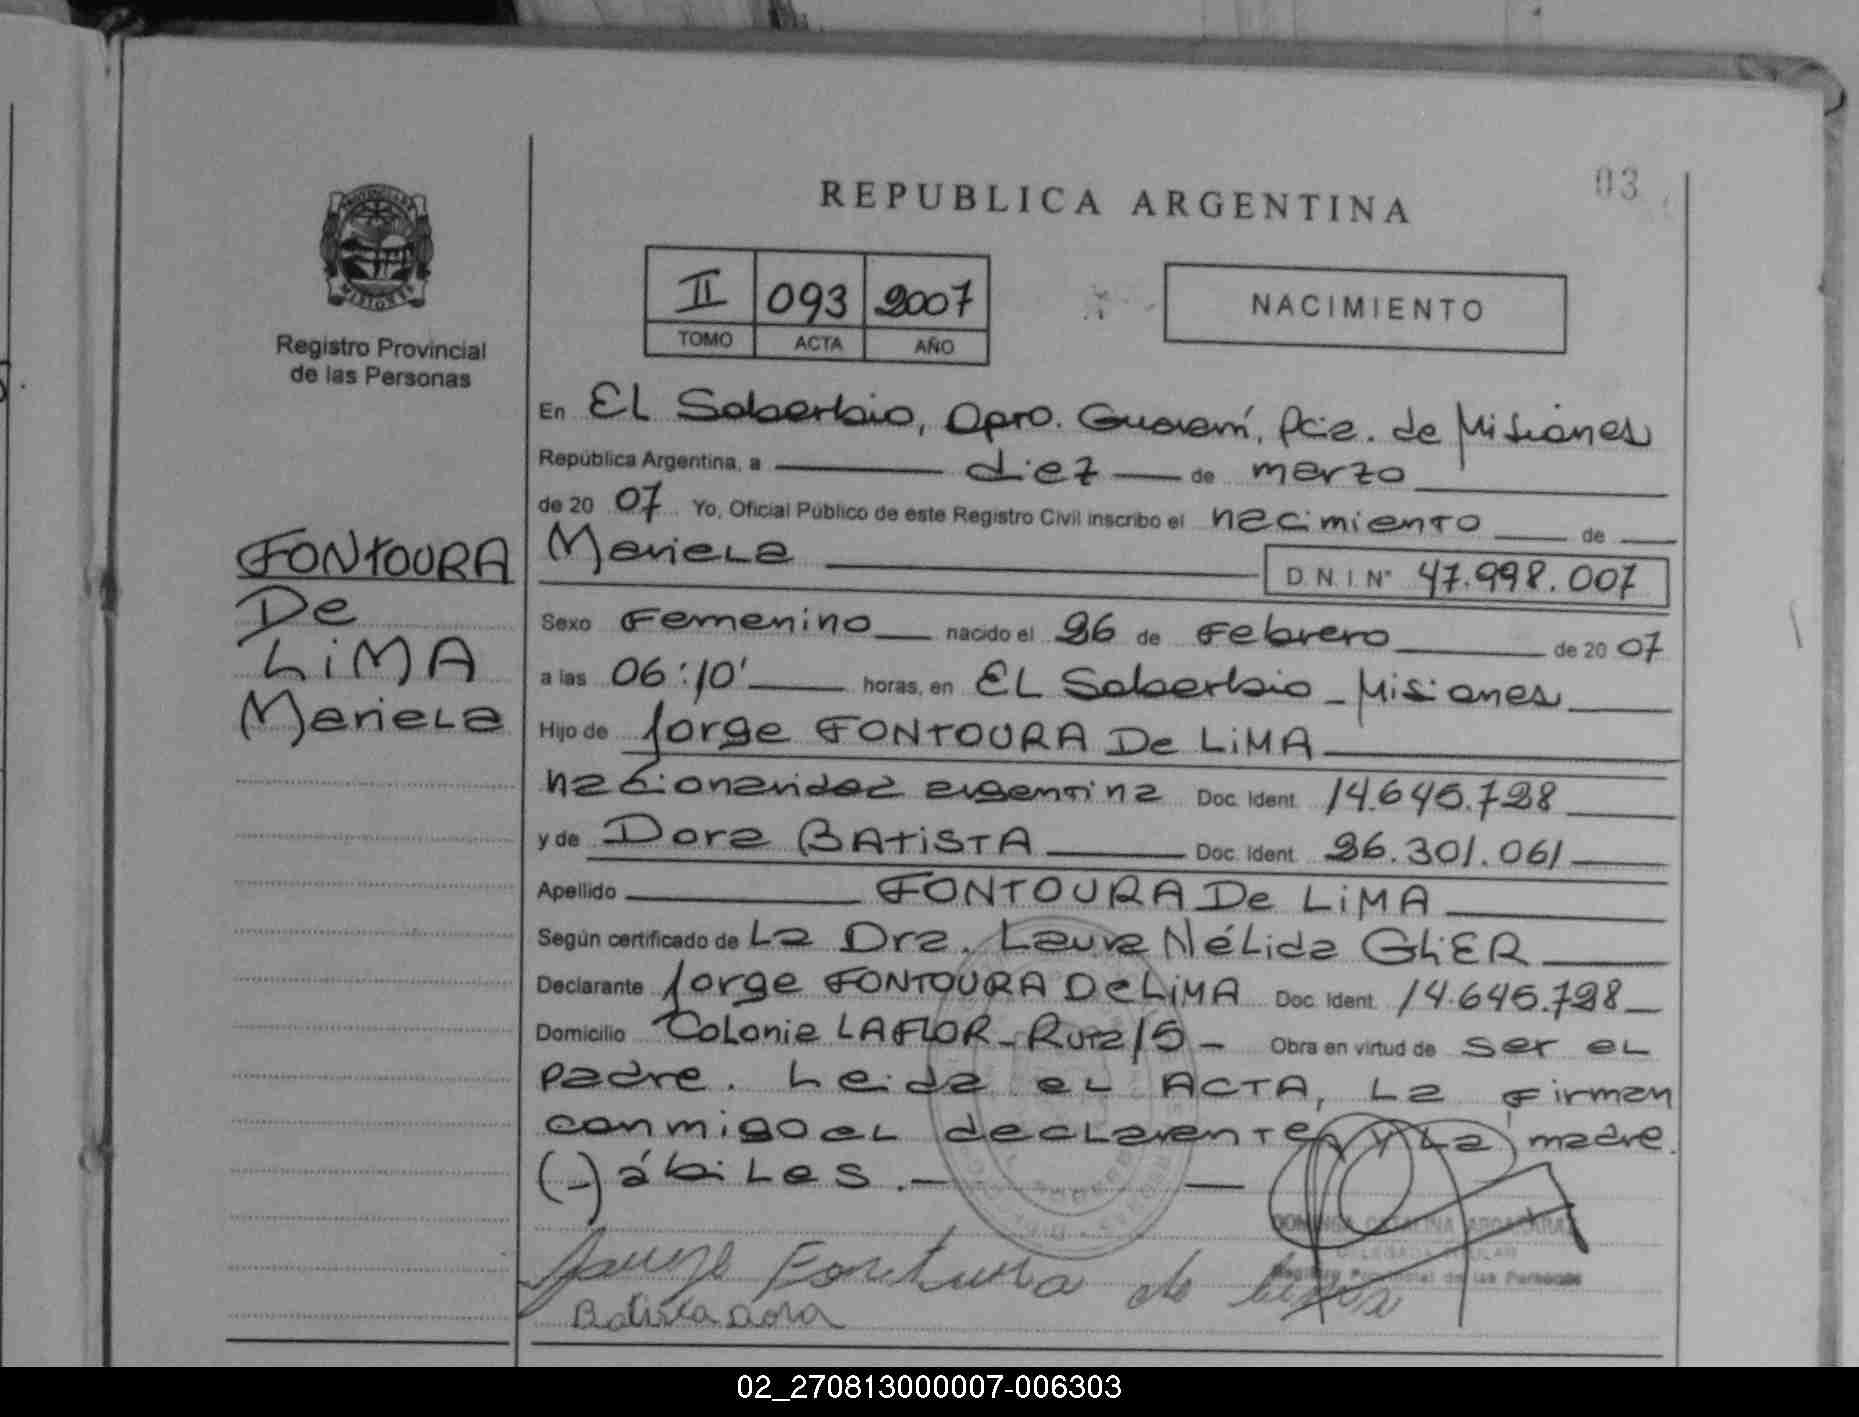 03
REPUBLICA ARGENTINA
PROVINCIA DE MISIONES
II 093 2007
TOMO ACTA AÑO
NACIMIENTO
Registro Provincial
de las Personas
En El Soberbio, Dpto. Guaraní, Pcia. de Misiones
República Argentina, a diez de marzo
de 20 07 Yo, Oficial Público de este Registro Civil inscribo el nacimiento de
Mariela
D.N.I. N° 47.998.007
FONTOURA
De
LiMA
Mariela
Sexo Femenino nacido el 26 de Febrero de 20 07
a las 06:10' horas, en El Soberbio - Misiones
Hijo de Jorge FONTOURA De LiMA
nacionalidad argentina Doc. Ident. 14.645.728
y de Dora BATiSTA Doc. Ident. 26.301.061
Apellido FONTOURA De LiMA
Según certificado de La Dra. Laura Nélida GLiER
Declarante Jorge FONTOURA De LiMA Doc. Ident. 14.645.728
Domicilio Colonia LA FLOR - Ruta 15 - Obra en virtud de ser el
padre. Leida el ACTA, la firman
conmigo el declarante y La madre.
(-) ábiles.-
DELEGADA TITULAR
Registro Provincial de las Personas
Jorge Fontoura de lima
Batista Dora
02_270813000007-006303